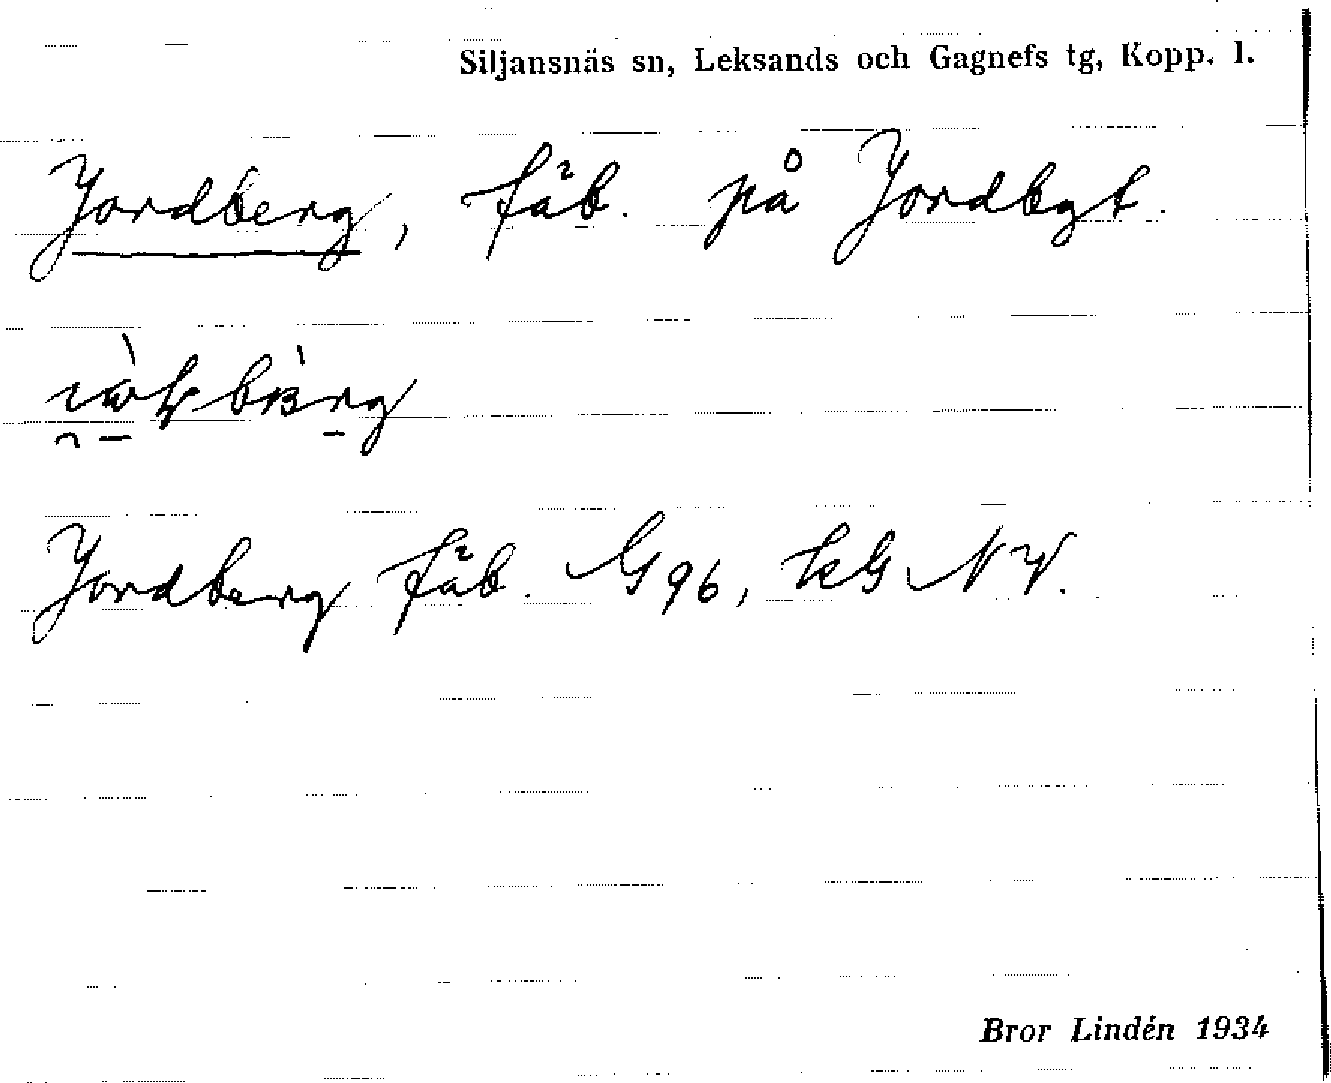 Siljansnäs sn, Leksands och Gagnefs tg, Kopp. l.
Jordberg, fäb. på Jordbgt.
Jordberg fäb. G96, kG NV.
Bror Lindén 1934